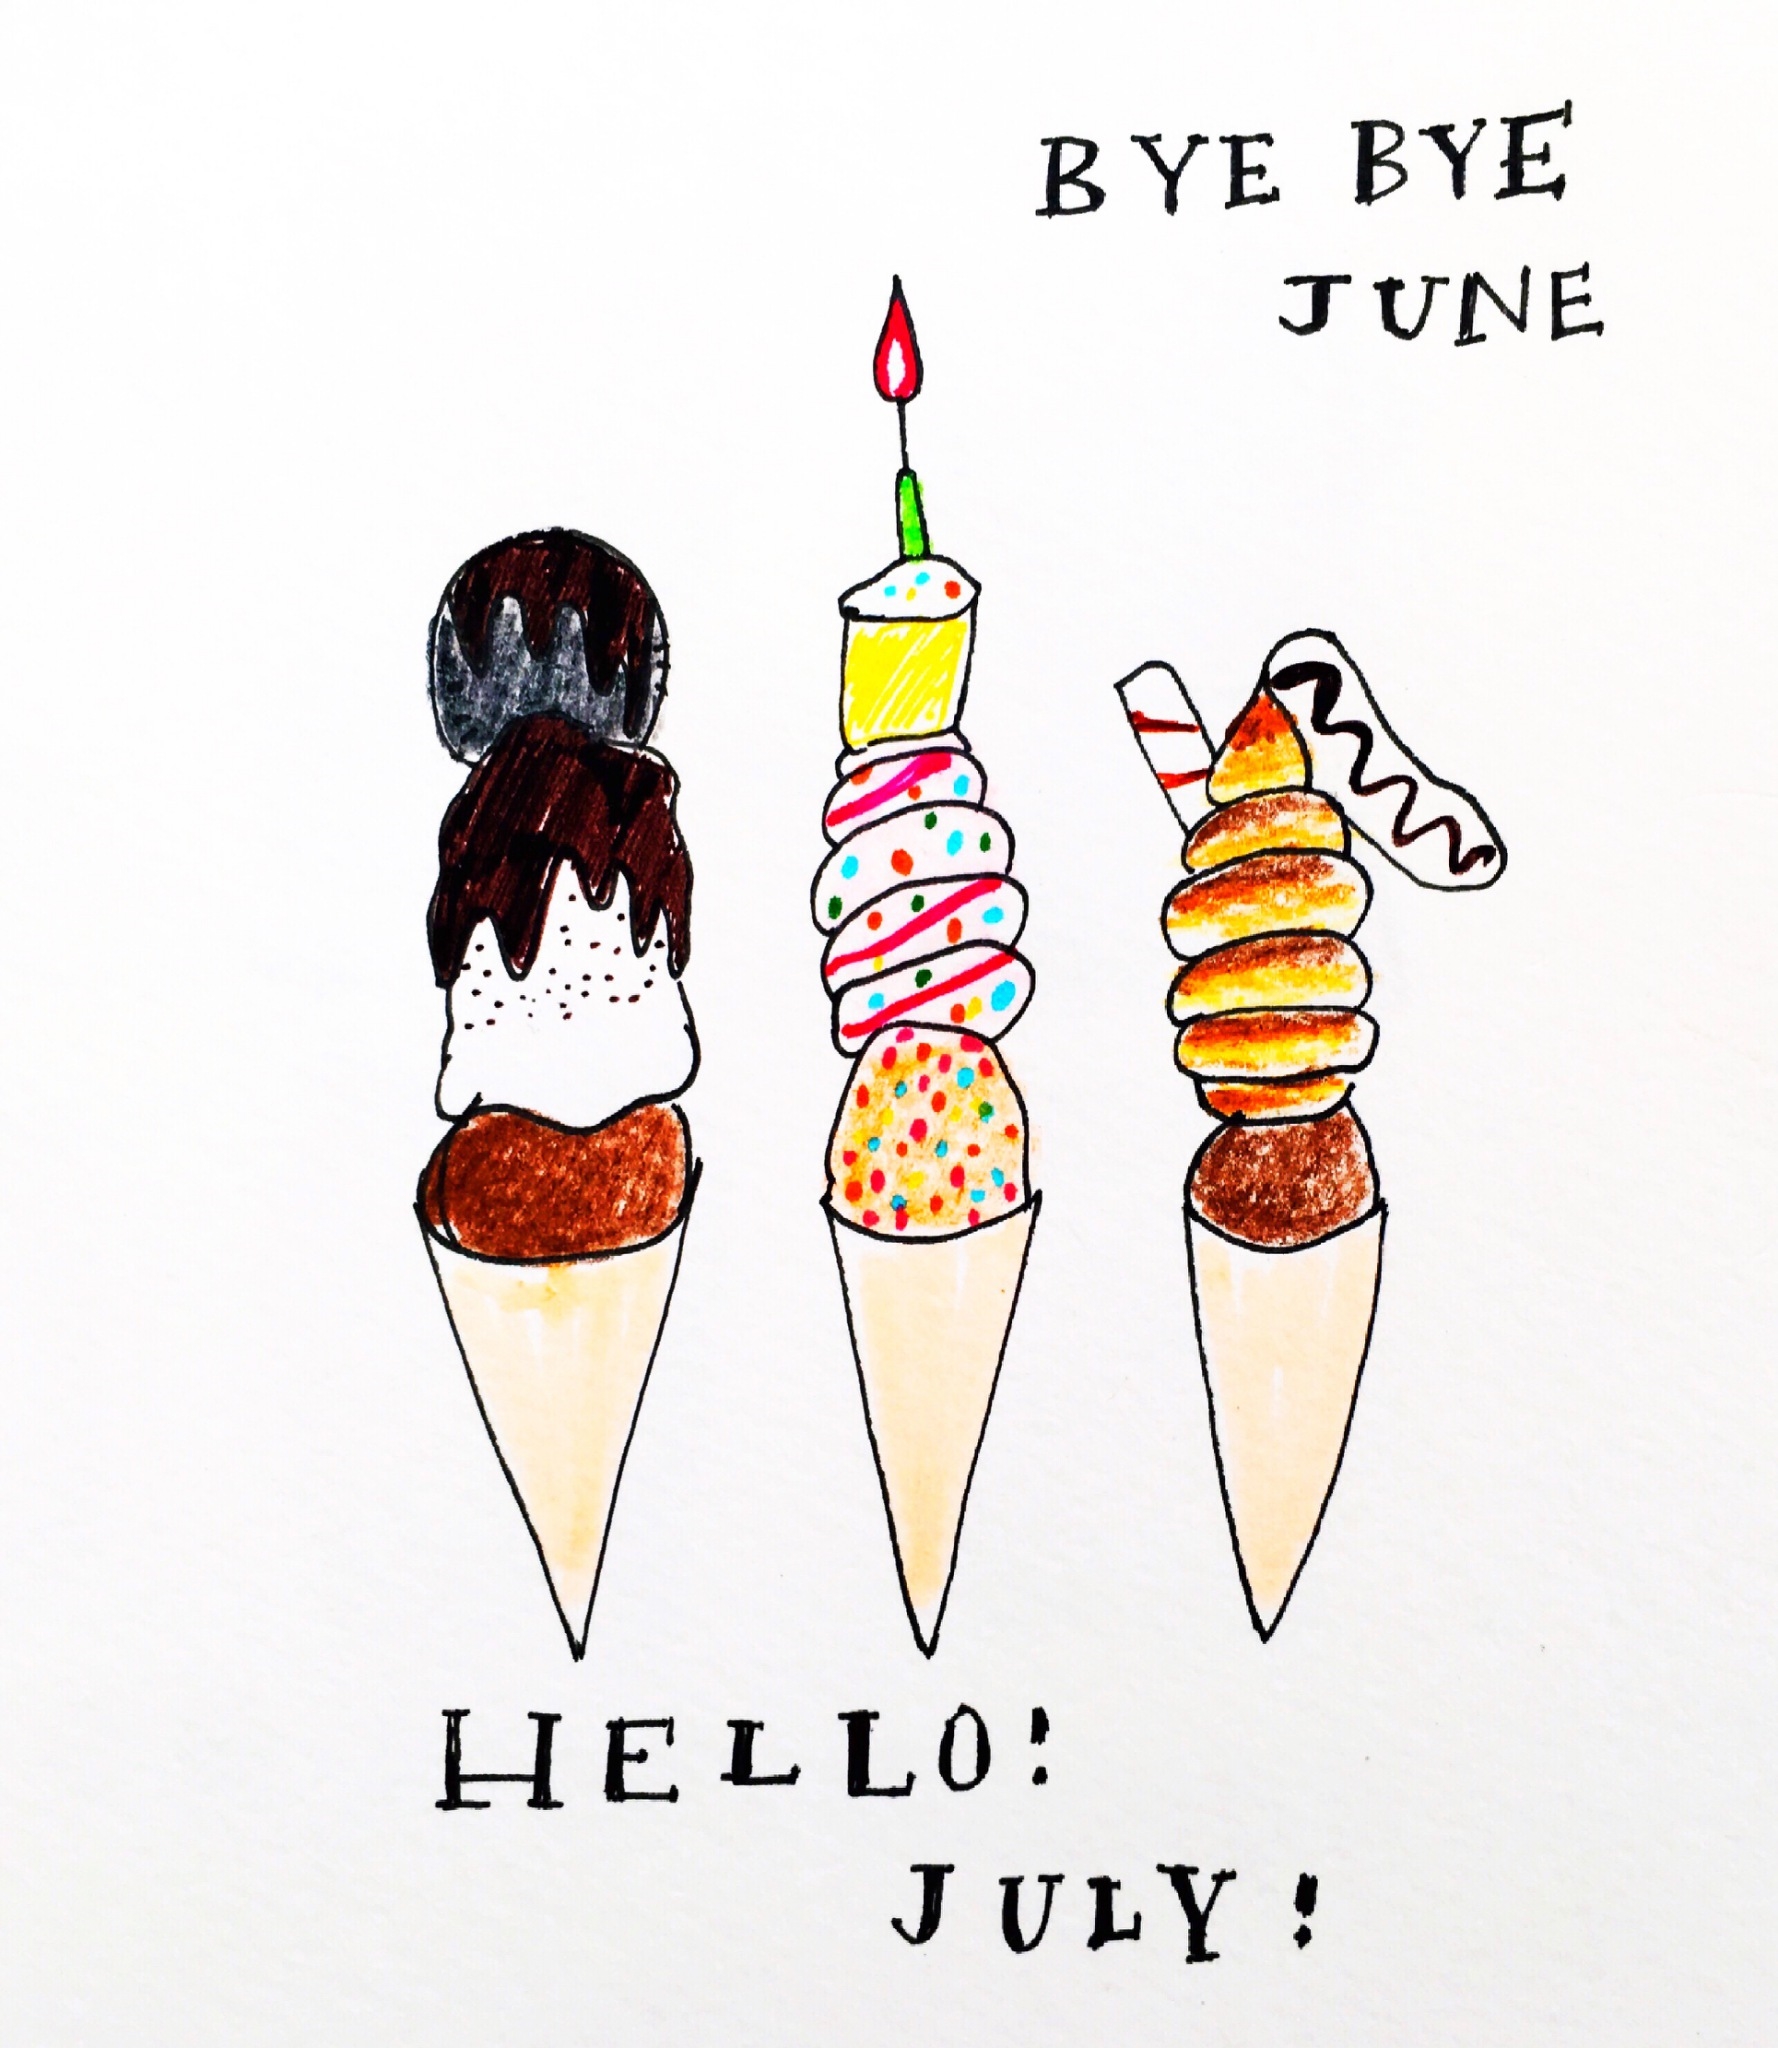 BYE BYE
JUNE
HELLO!
JULY!